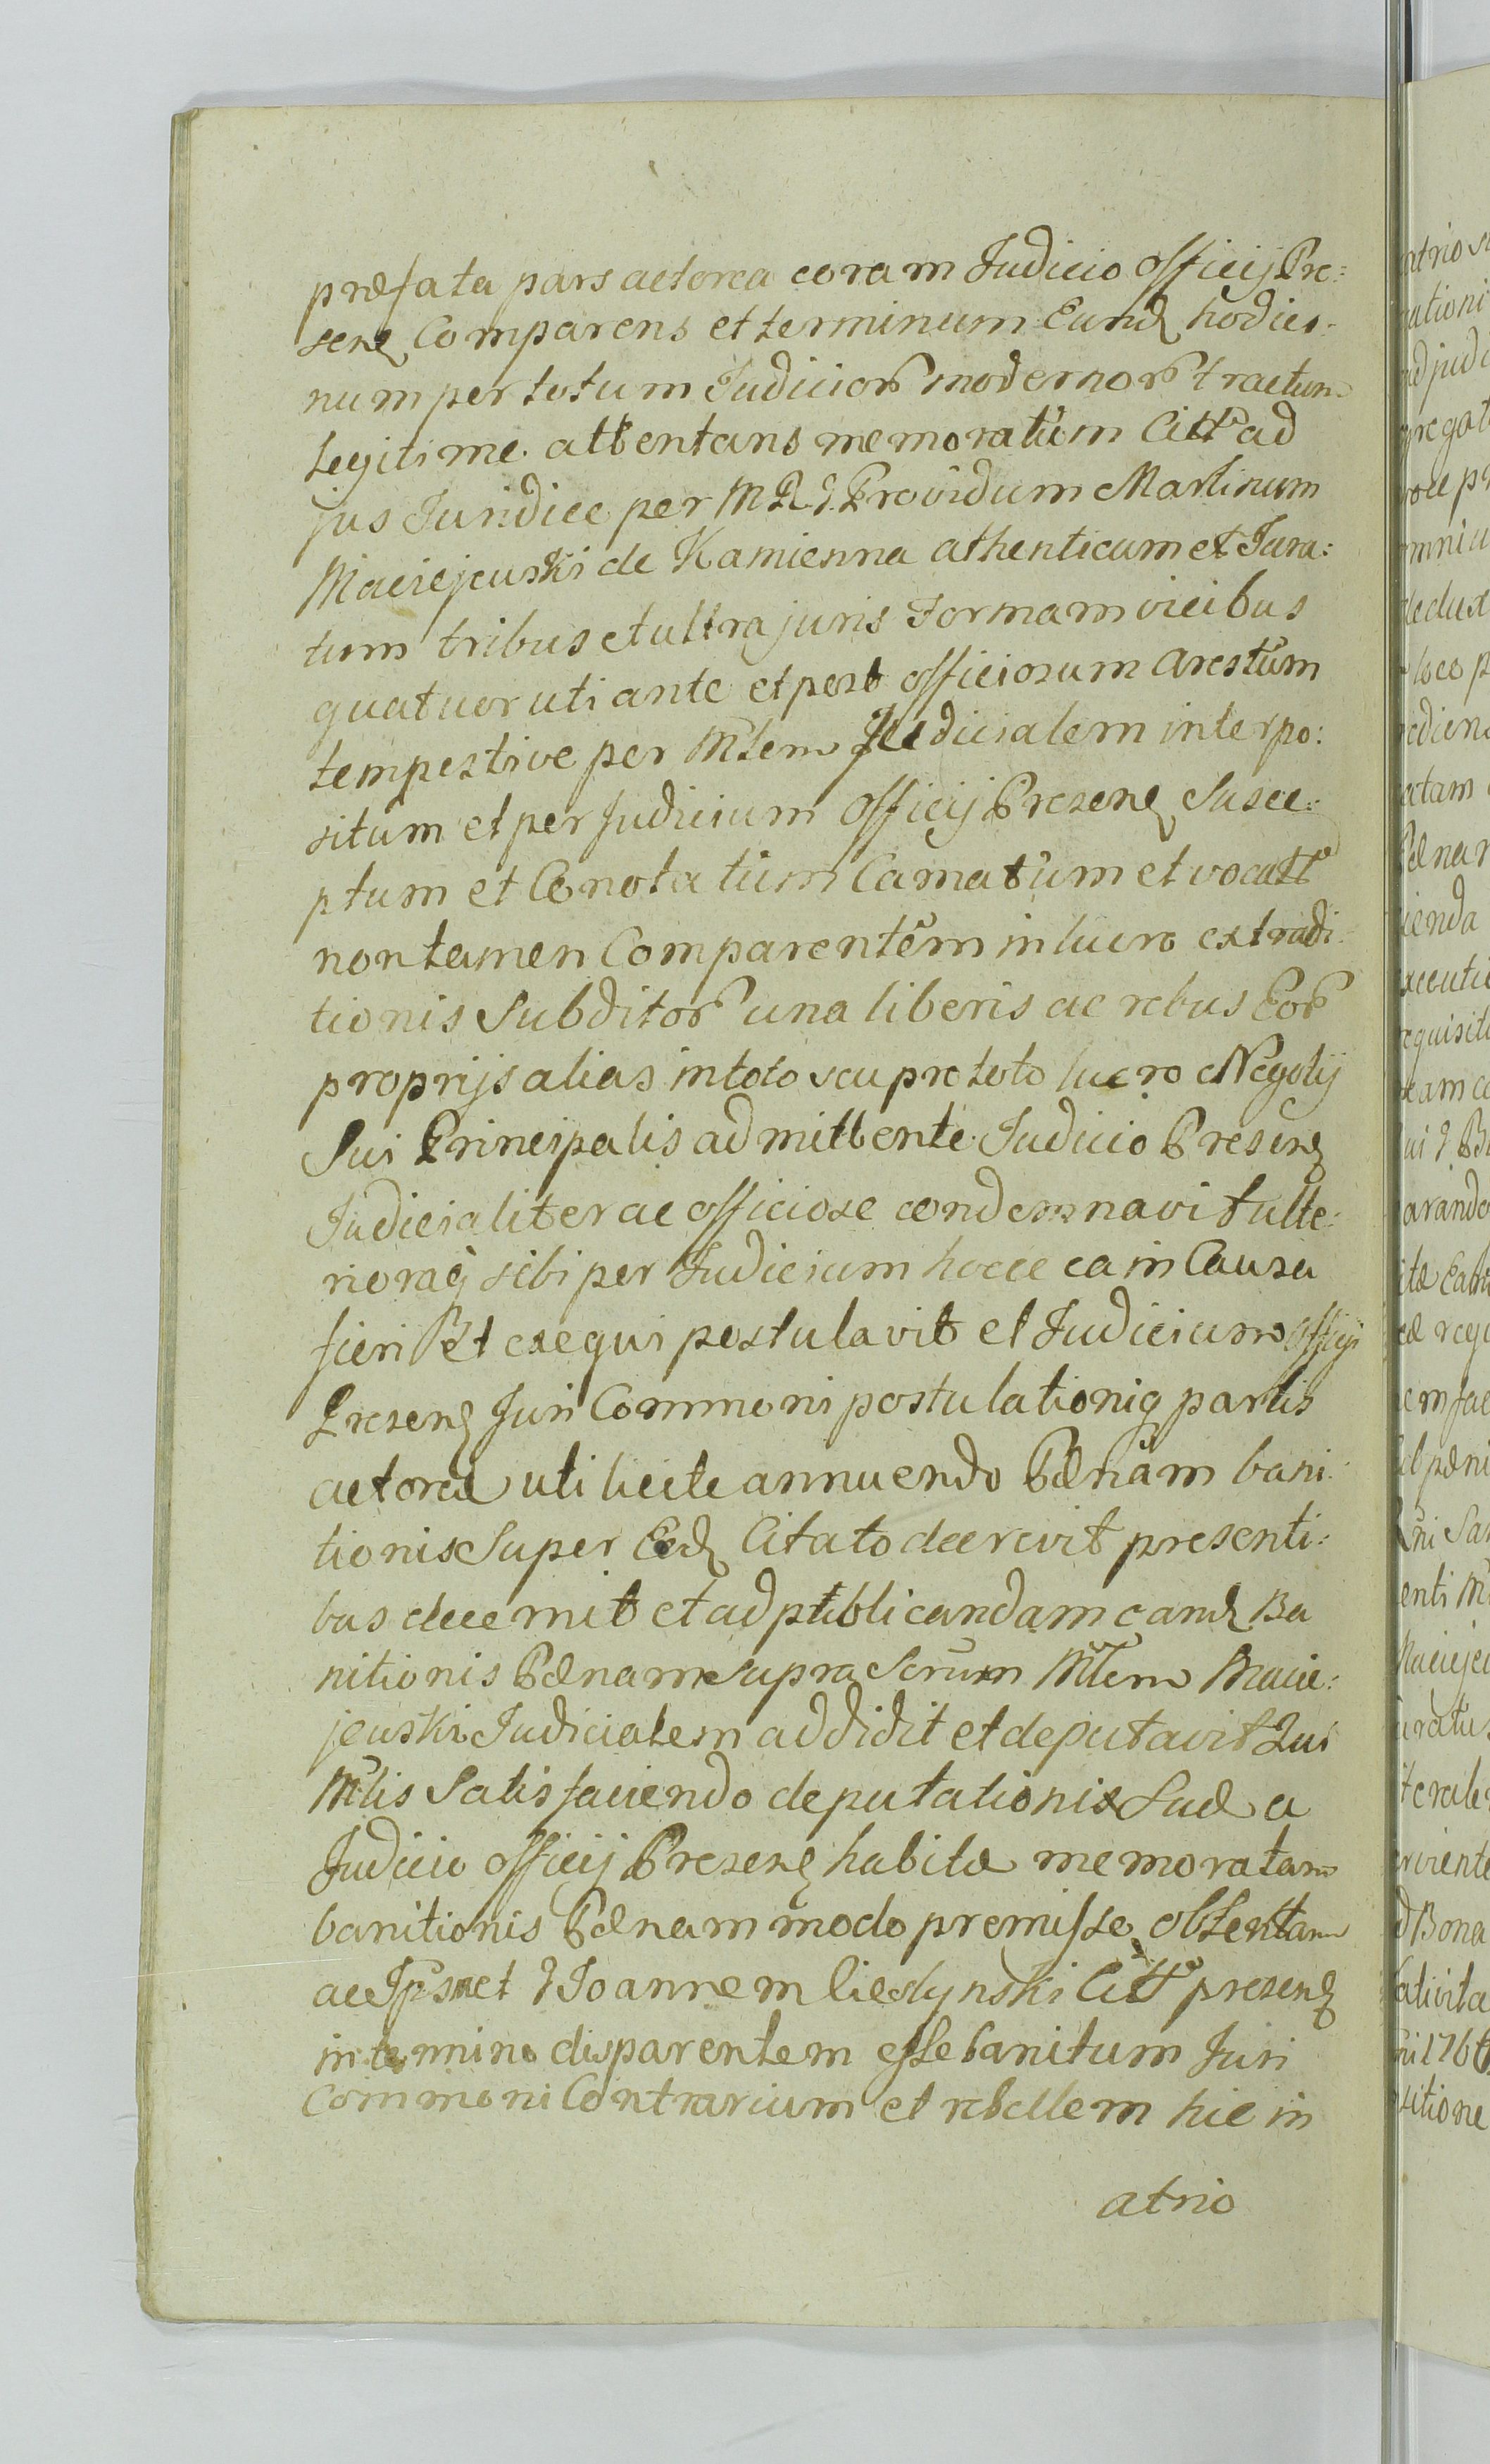 præfata pars actorea coram Judicio officij Pre:
sen. Comparens et terminum Eund. hodier:
num per totum Judicior. modernor. tractum
legitime. attentans memoratum Citt. ad
jus Juridice per M R G Providum Martinum
Maciejewski de Kamienna athenticum et Jura:
tum tribus et ultra juris Formam vicibus
quatuor uti ante et post officiosum arestum
tempestive per Mlem Judicialem interpo:
situm et per Judicium Officij Presen. Susce:
ptum et Conotatum Camatum et vocatt.
non tamen Comparentem in lucro extradi:
tionis Subditor. una liberis ac rebus Eor.
proprijs alias in toto seu pro toto lucro Negotij
Sui Principalis admittente Judicio Presen.
Judicialiter ac officiose condemnavit ulte:
rioraq. sibi per Judicium hocce ea in Causa
fieri Et exequi postulavit et Judicium officij
Presen. Juri Commoni postulationiq. partis
actoreæ uti licite annuendo Pænam bani:
tionis Super Eod. Citato decrevit presenti:
bus decernit et ad publicandam eand. Ba
nitionis Pænam supra Scrum Mlem Macie:
jewski Judicialem addidit et deputavit Qui
Mlis Satisfaciendo deputationis Suæ a
Judicio officij Presen. habitæ memoratam
banitionis Pænam modo premisso obtentam
ac Ipsmet G Joannem Ciedynski Citt. presen.
in termino disparentem esse banitum Juri
Commoni Contrarium et rebellem hic in
atrio